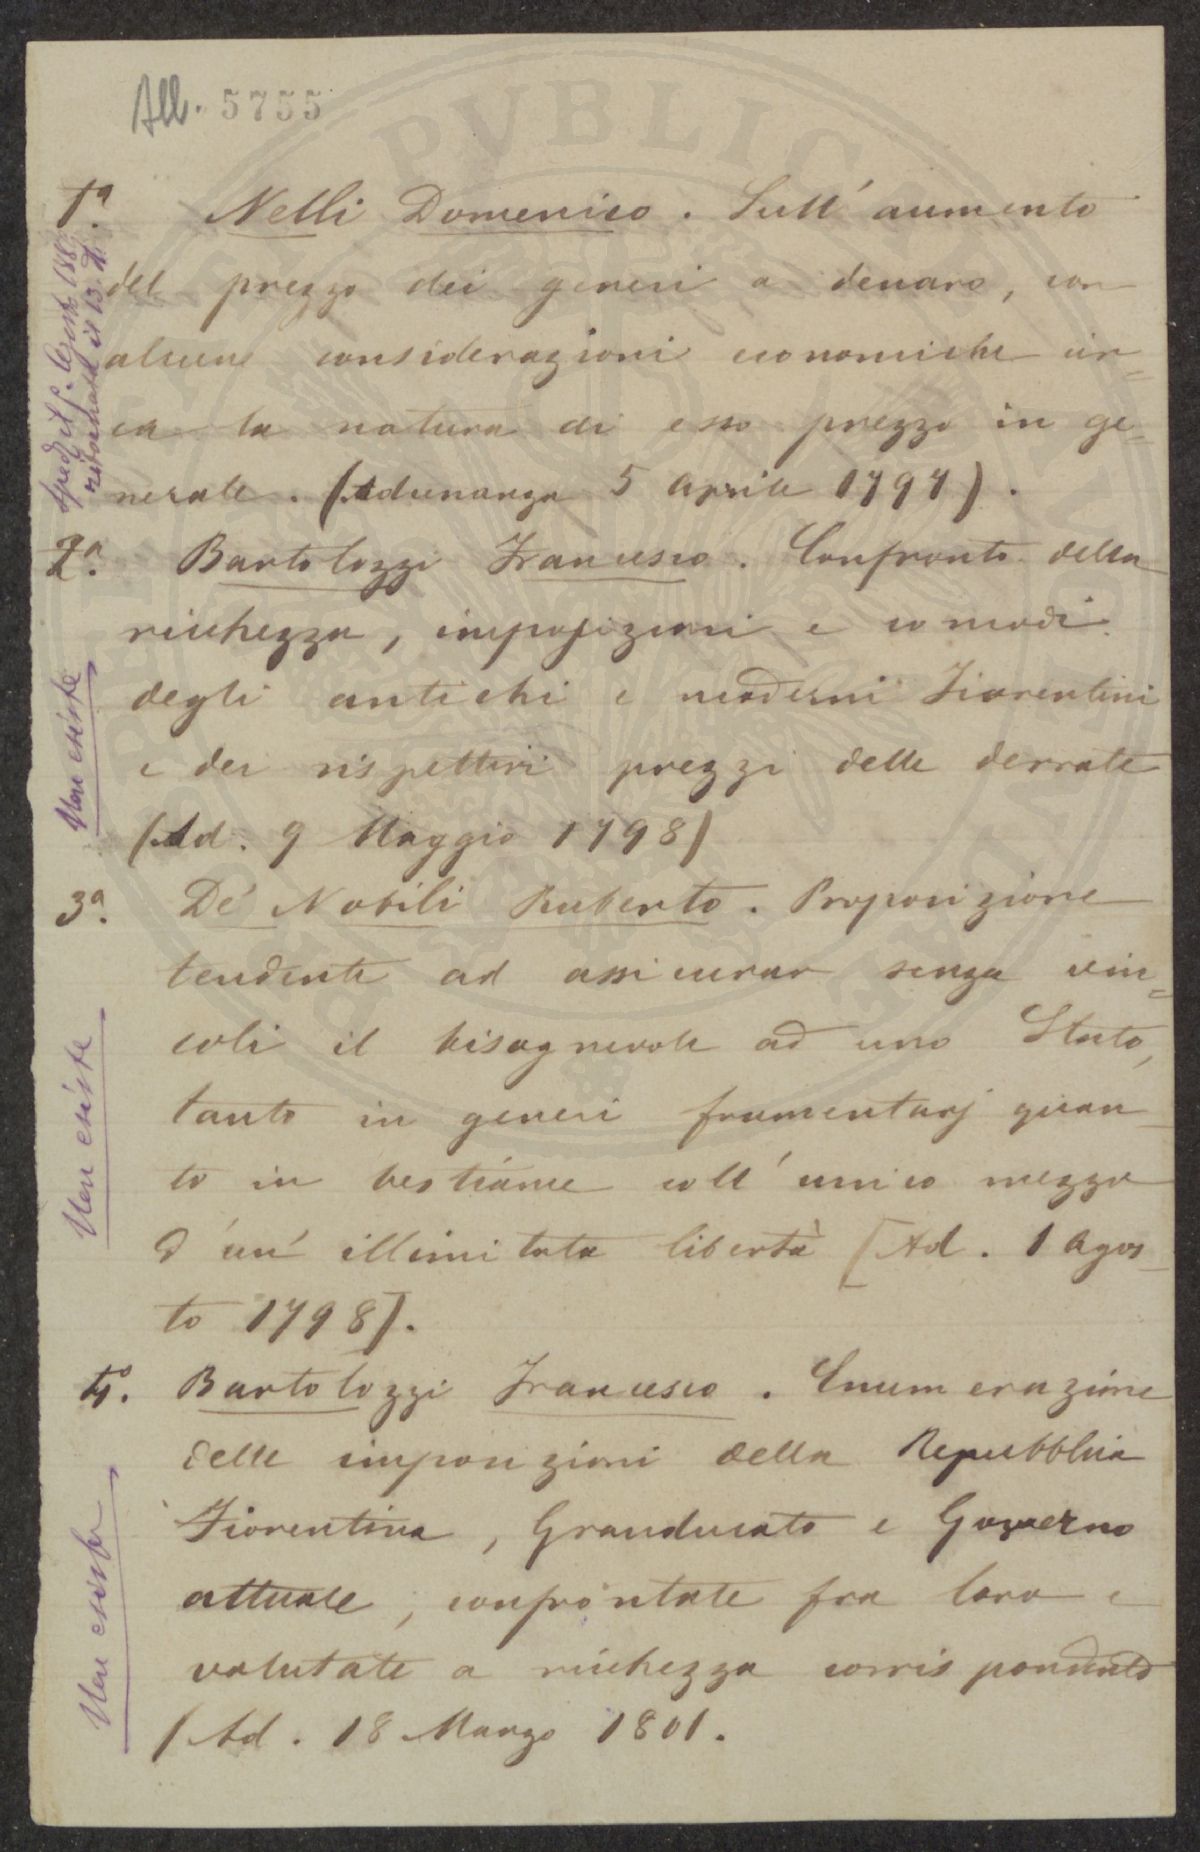 All. 5755
1ª. Nelli Domenico. Sull' aumento
del prezzo dei generi a denaro, con
alcune considerazioni economiche cir=
ca la natura di esso prezzo in ge=
nerale. (Adunanza 5 Aprile 1797).
ritornata il 13 d.º
2ª. Bartolozzi Francesco. Confronto della
ricchezza, imposizioni e comodi
degli antichi e moderni Fiorentini
e dei rispettivi prezzi delle derrate
(Ad. 9 Maggio 1798)
Non esiste
3ª. De' Nobili Ruberto. Proposizione
tendente ad assicurar senza vin=
coli il bisognevole ad uno Stato,
tanto in generi frumentarj quan_
to in bestiame coll' unico mezzo
d'un' illimitata libertà [Ad. 1 Agos_
to 1798].
Non esiste
4º. Bartolozzi Francesco. Enumerazione
delle imposizioni della Repubblica
Fiorentina, Granducato e Governo
attuale, confrontate fra loro e
valutate a ricchezza corrispondente
(Ad. 18 Marzo 1801.
Non esiste